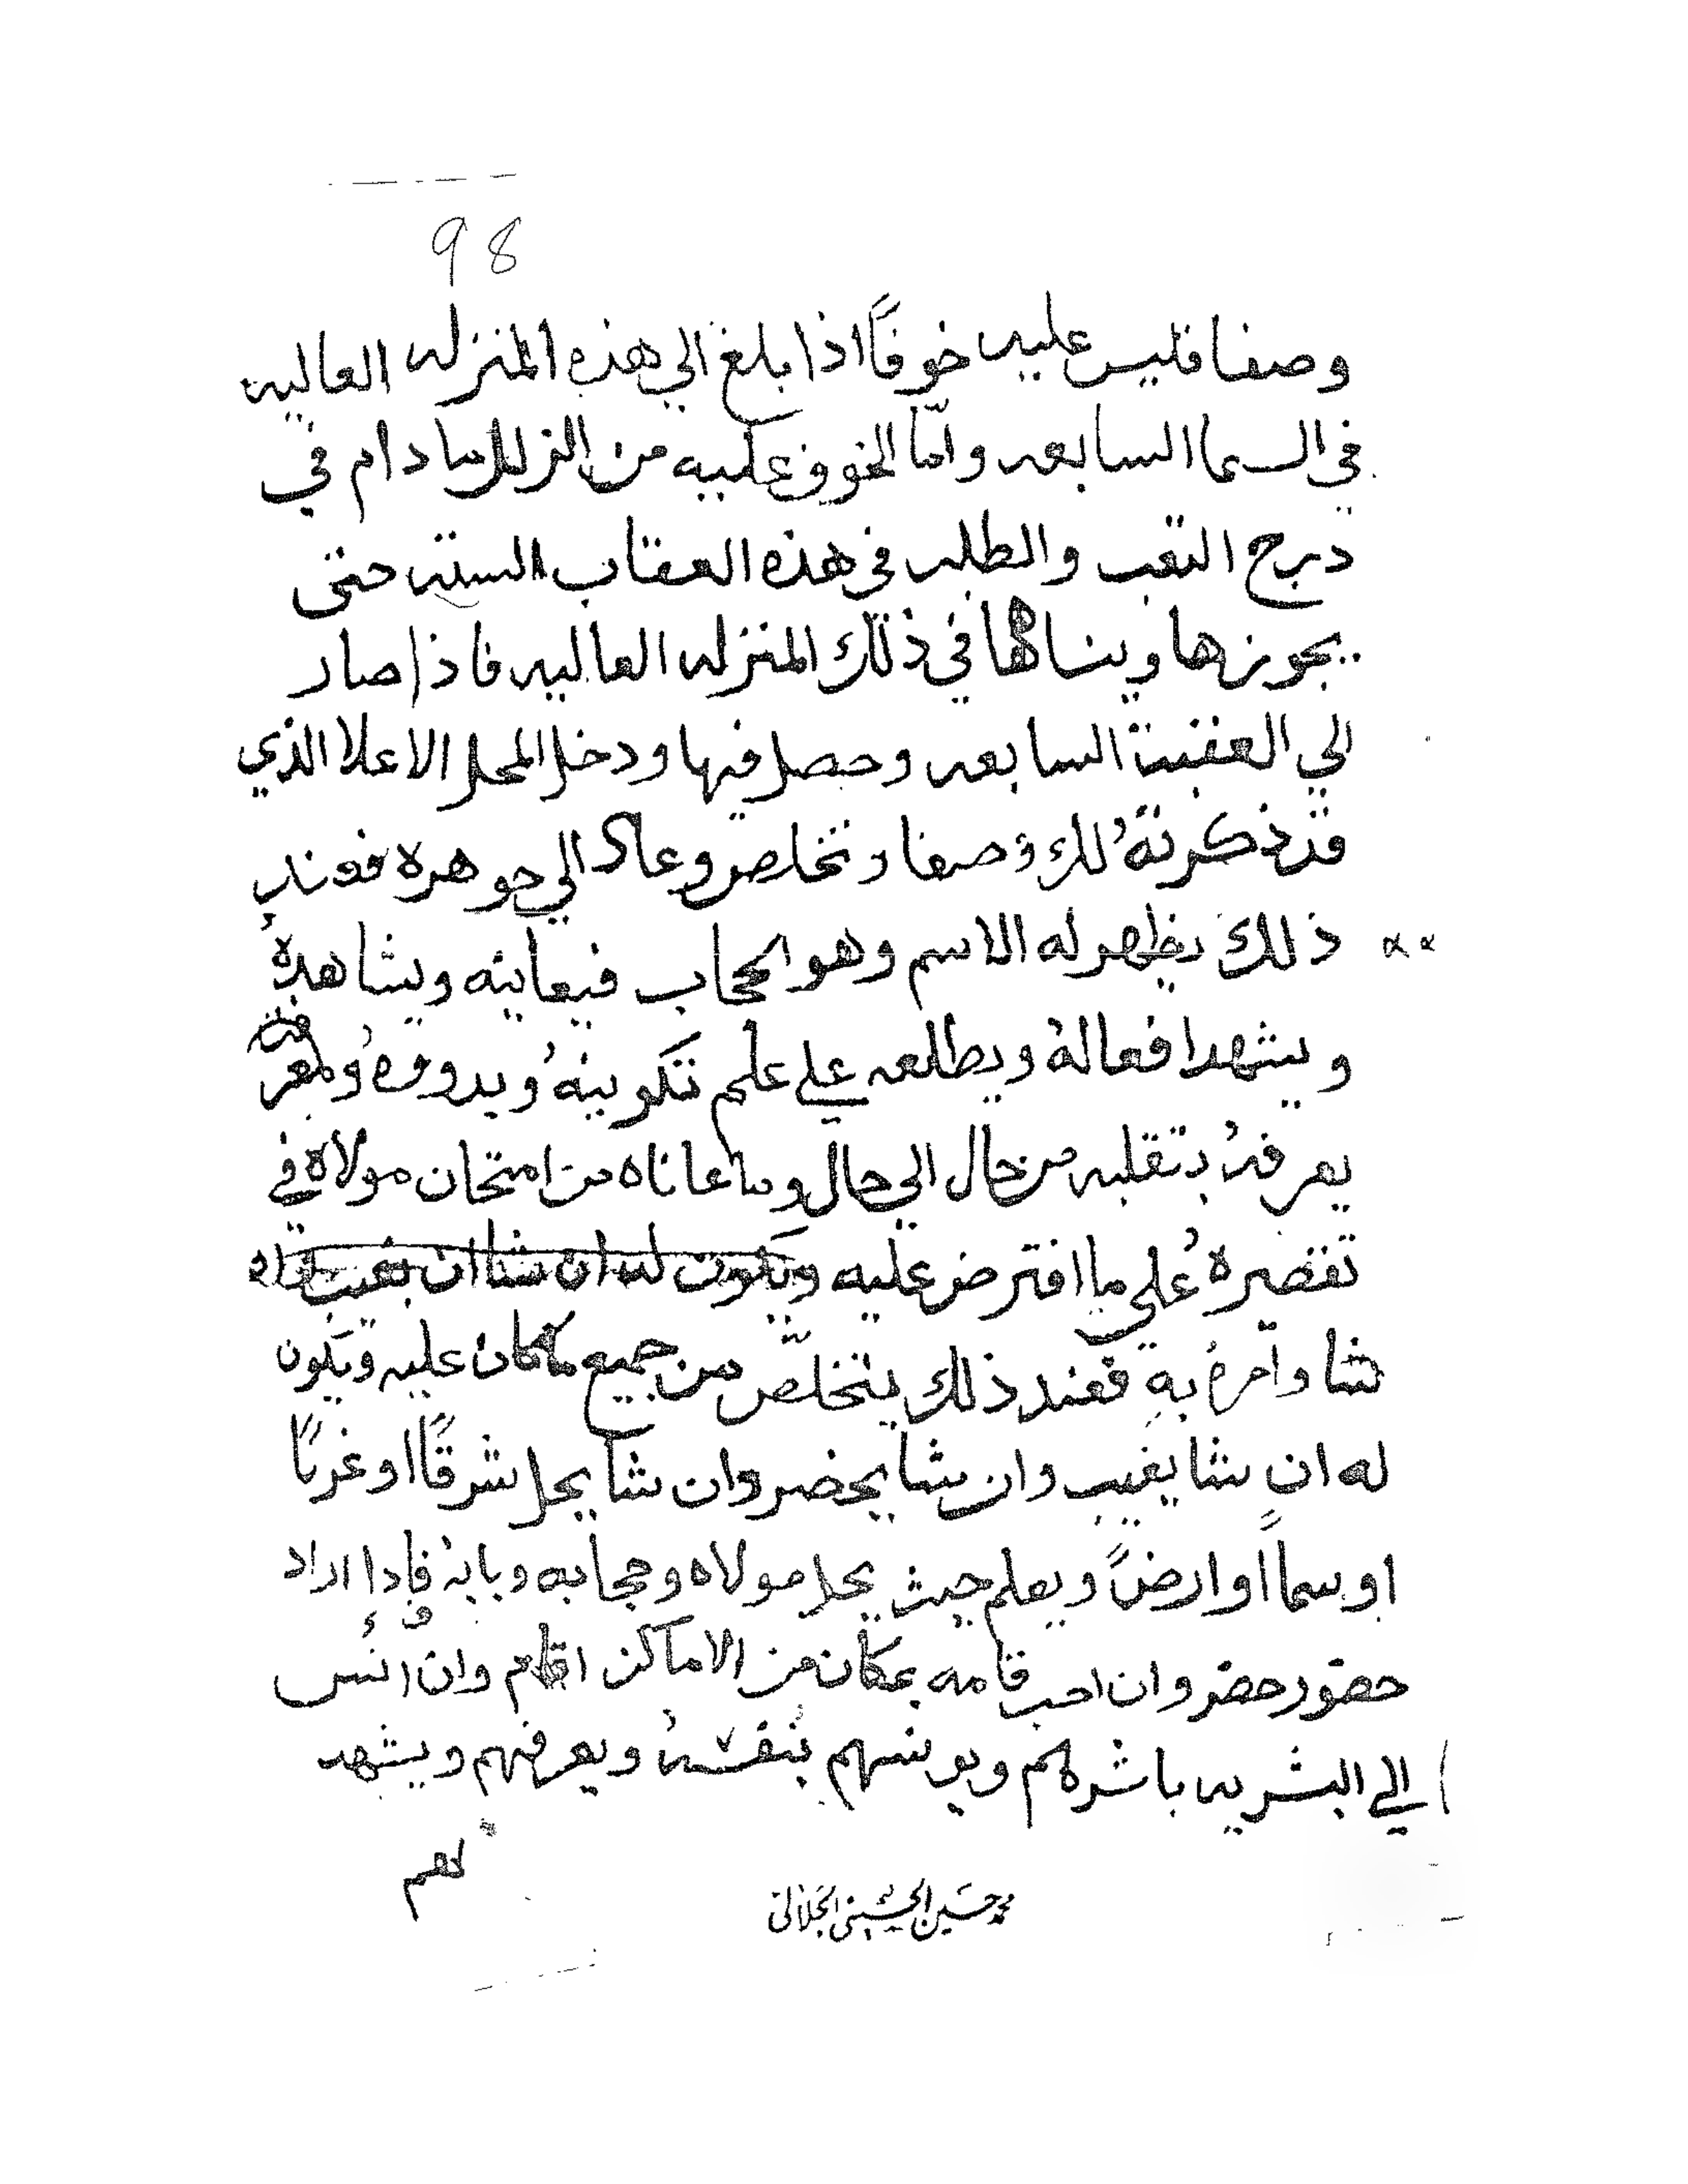 98
وصفا فليس عليه خوفًا اذا بلغ الي هذه المنزله العاليه
في السما السابعه وامّا الخوف عليه من الزلل مادام في
درج التعب والطلب في هذه العقاب السته حتى
يجوزها وينساها في ذلك المنزله العاليه فاذا صار
الي العقبة السابعه وحصل فيها ودخل المحل الاعلا الذي
قد ذكرتهُ لك وصفا وتخلص وعاد الي جوهره فعند
ذلك يظهر له الاسم وهو الحجاب فيعاينه ويشاهدهُ
ويشهد افعالهُ ويطلعه علي علم تكوينهُ و
يعرفهُ بتقلبه من حال الي حال وما عاناه من امتحان مولاه في
تقصيرهُ علي ما افترض عليه ويكون له ان شا ان يغيب
شا وامرهُ بهِ فعند ذلك يتخلّص من جميع ما كان عليه ويكون
له ان شا يغيب وان شا يحضر وان شا يحل شرقًا او غربًا
او سماً او ارضً ويعلم حيث يحل مولاه وحجابه وبابهُ فاذا اراد
حضور حضر وان احب قامه بمكان من الاماكن اقام وان انس
الي البشريه باشرهم ويونسهم بنفسهُ ويعرفهم ويشهد
لهم
محمد حسين الحسيني الجلالي